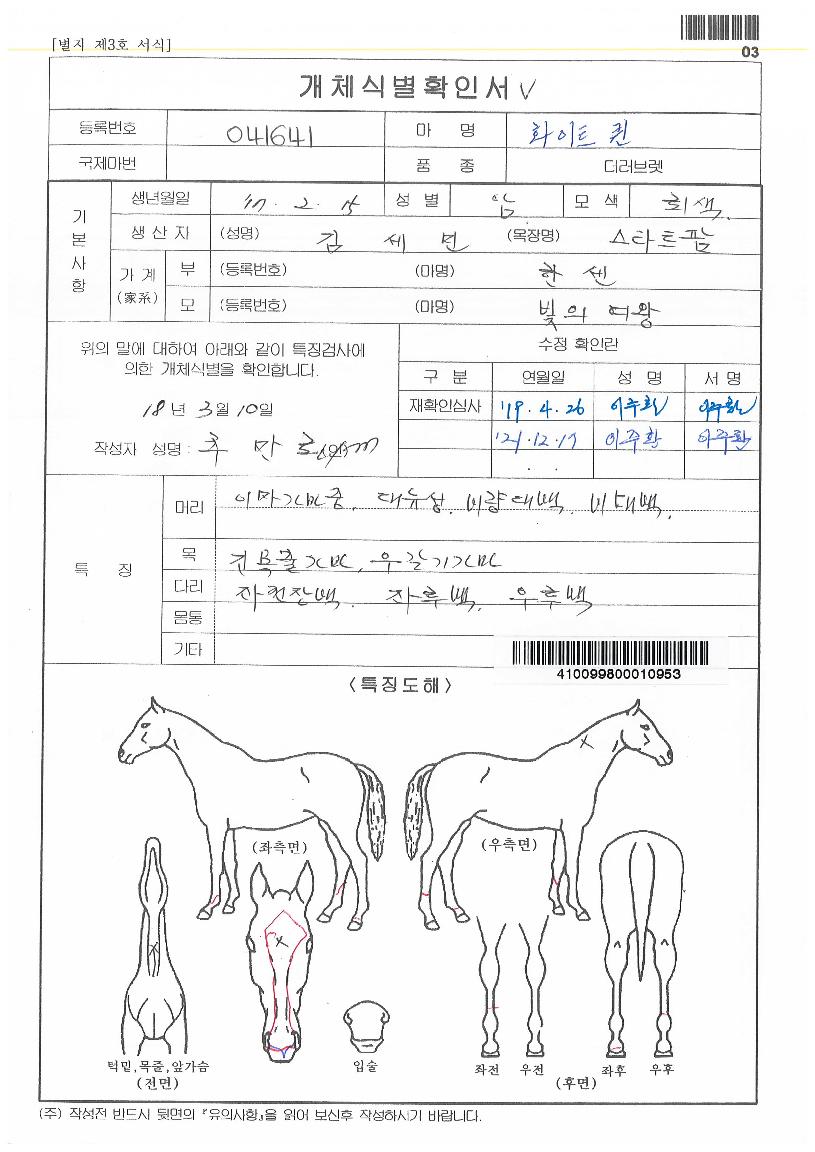 [별지 제3호 서식]
03
개체식별확인서 √
등록번호 041641 마 명 화이트 퀸
국제마번 품 종 더러브렛
기본사항
생년월일 '17. 2. 15 성 별 암 모 색 회색.
생 산 자 (성명) 김 세 현 (목장명) 스타트팜
가 계 (家系)
부 (등록번호) (마명) 한 센
모 (등록번호) (마명) 빛의 여왕
위의 말에 대하여 아래와 같이 특징검사에
의한 개체식별을 확인합니다.
18년 3월 10일
작성자 성명 : 추 만
수정 확인란
구 분 연월일 성 명 서 명
재확인심사 '19. 4. 26 이주환 이주환
'21. 12. 17 이주환 이주환
. .
특 징
머리 이마가마중. 대유성. 비량대백. 비대백.
목
다리 좌전장백. 좌후백. 우후백
몸통
기타
410099800010953
<특징도해>
(좌측면)
(우측면)
턱밑,목줄,앞가슴
(전면)
입술
좌전 우전
좌후 우후
(후면)
(주) 작성전 반드시 뒷면의 『유의사항』을 읽어 보신후 작성하시기 바랍니다.